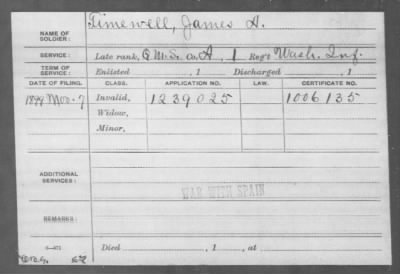 NAME OF SOLDIER: Timewell, James A.
SERVICE: Late rank, Q.M.S. Co. A, 1 Reg't Wash. Inf.
TERM OF SERVICE: Enlisted , 1 Discharged , 1
DATE OF FILING. CLASS. APPLICATION NO. LAW. CERTIFICATE NO.
1899 Nov-7 Invalid, 1239025 1006135
Widow,
Minor,
ADDITIONAL SERVICES:
WAR WITH SPAIN
REMARKS:
Died , 1 , at